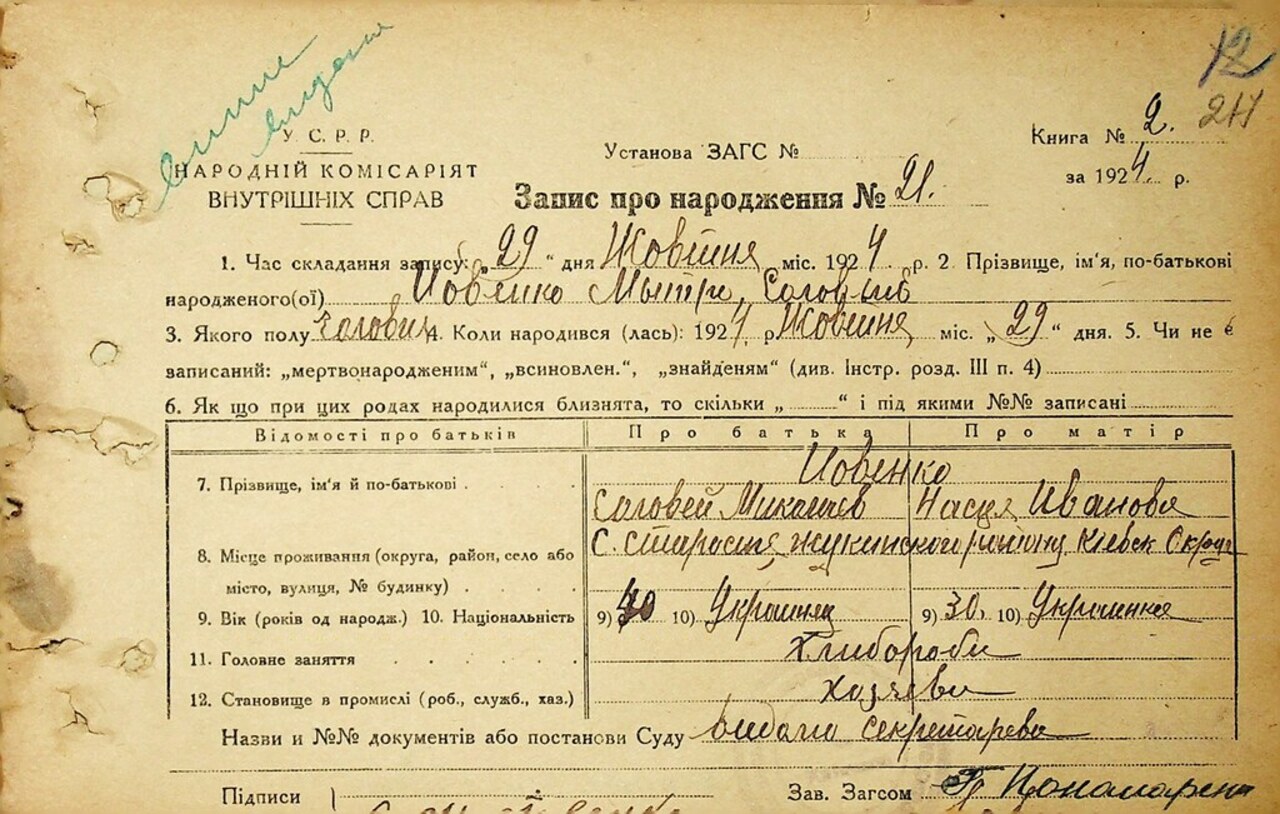 12
24
випис видано
У. С. Р. Р.
НАРОДНІЙ КОМІСАРІЯТ
ВНУТРІШНІХ СПРАВ
Установа ЗАГС №
Книга № 2.
за 1924 р.
Запис про народження № 21.
1. Час складання запису: „29“ дня Жовтня міс. 1924 р. 2. Прізвище, ім'я, по-батькові
народженого(ої) Иовенко Мытро,
3. Якого полу 4. Коли народився (лась): 1924 р. Жовтня міс. „29“ дня. 5. Чи не є
записаний: „мертвонародженим“, „всиновлен.“, „знайденям“ (див. Інстр. розд. III п. 4)
6. Як що при цих родах народилися близнята, то скільки „ “ і під якими №№ записані
Відомості про батьків Про батька Про матір
7. Прізвище, ім'я й по-батькові Иовенко
Соловей Миколаев Настя Иванова
8. Місце проживання (округа, район, село або С. Жукинского району Киевск Округ
місто, вулиця, № будинку)
9. Вік (років од народж.) 10. Національність 9) 40 10) Украинец 9) 30. 10) Украинка
11. Головне заняття Хлибороби
12. Становище в промислі (роб., служб., хаз.) хозяеви
Назви и №№ документів або постанови Суду видано секретарева
Підписи Зав. Загсом Пономаренко